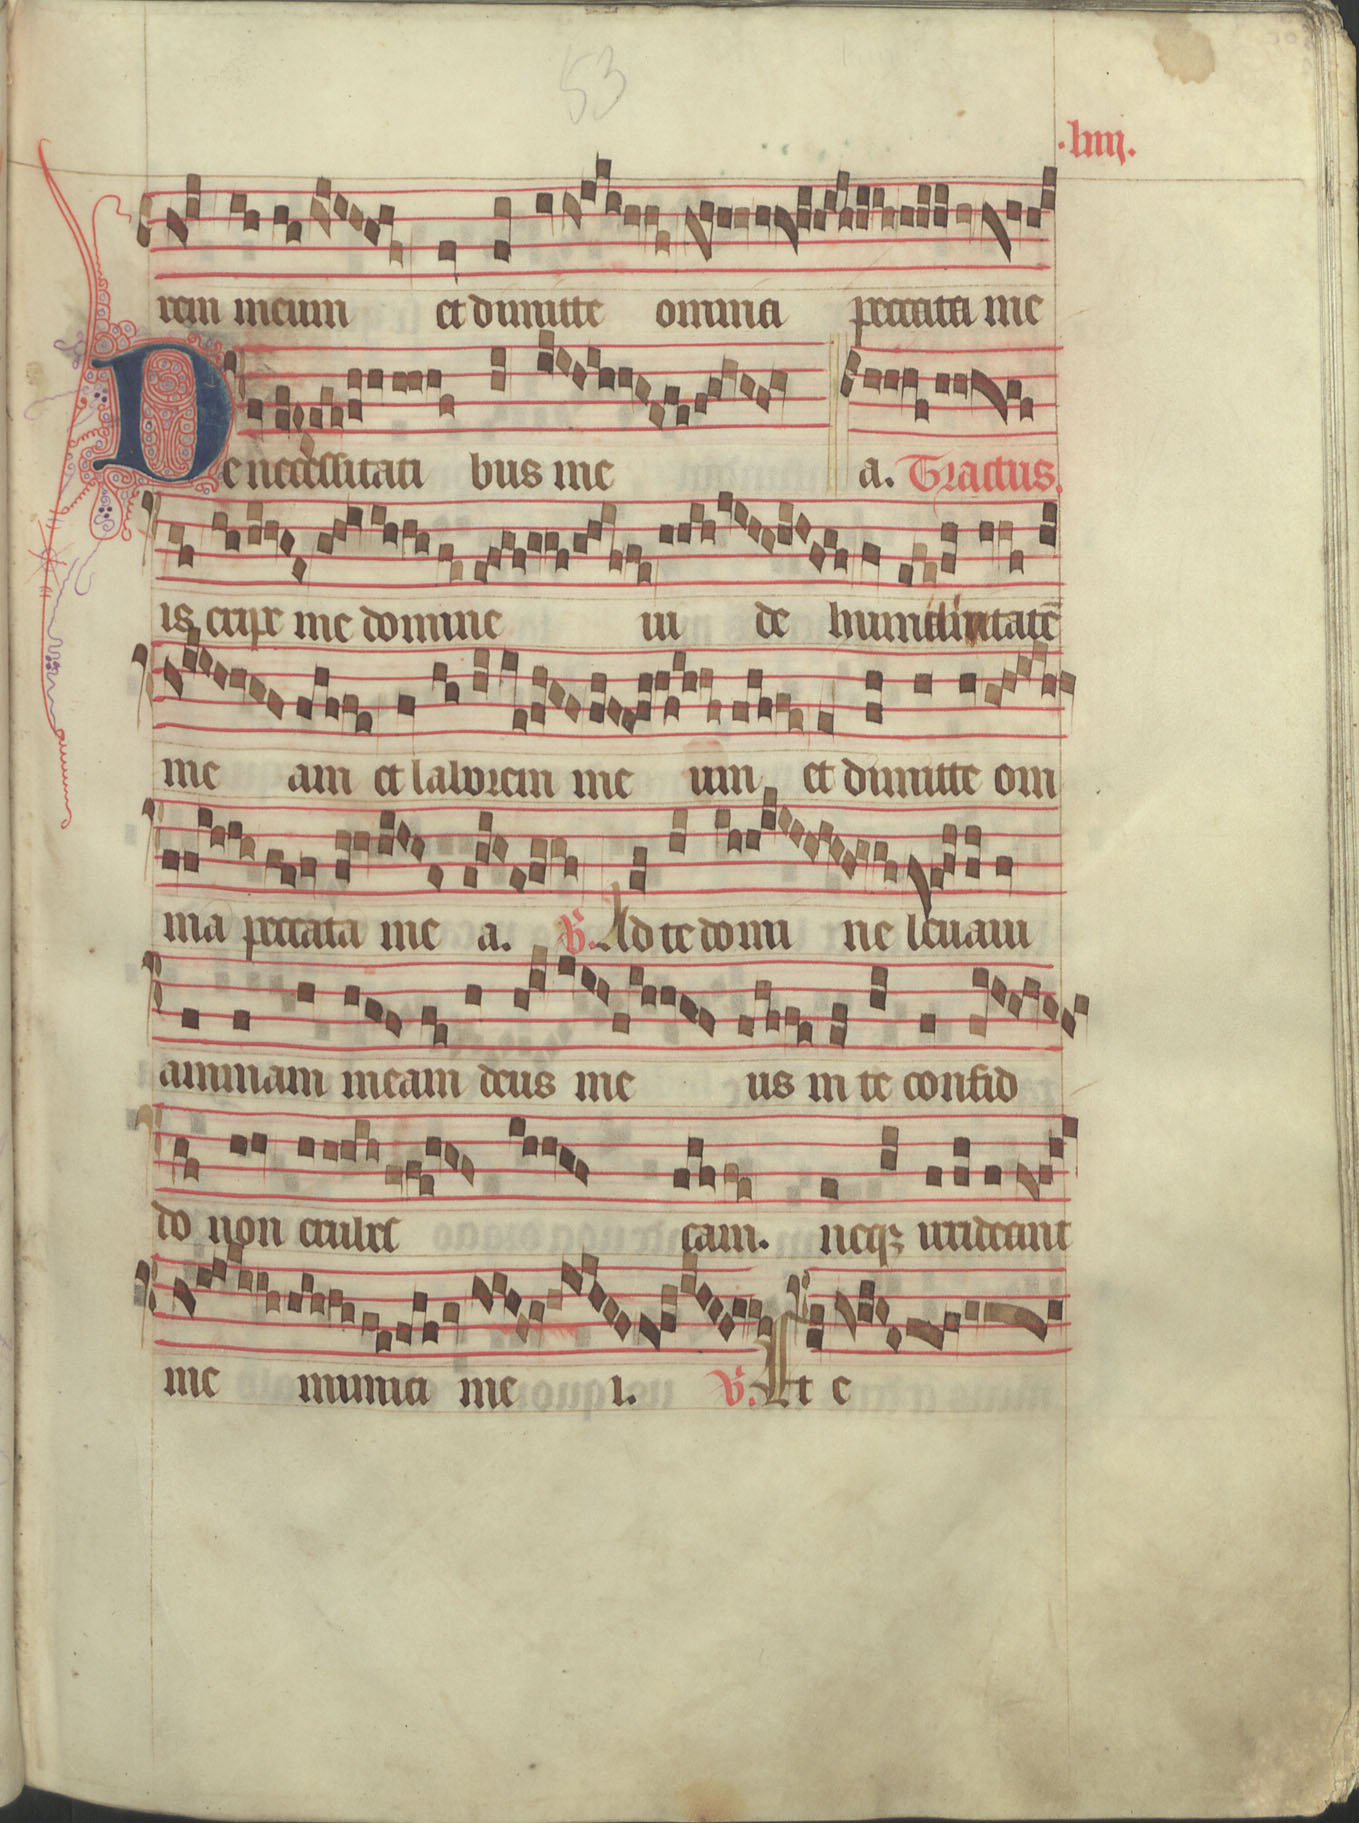 53
·liiij.
rem meum et dimitte omnia peccata me
De necessitati bus me a. Tractus.
is eripe me domine ui de humilitatē
me am et laborem me um et dimitte om
nia peccata me a. V. Ad te domi ne leuaui
animam meam deus me us in te confid
do non erubes cam. neqꝫ irrideant
me inimici me i. V. Et e